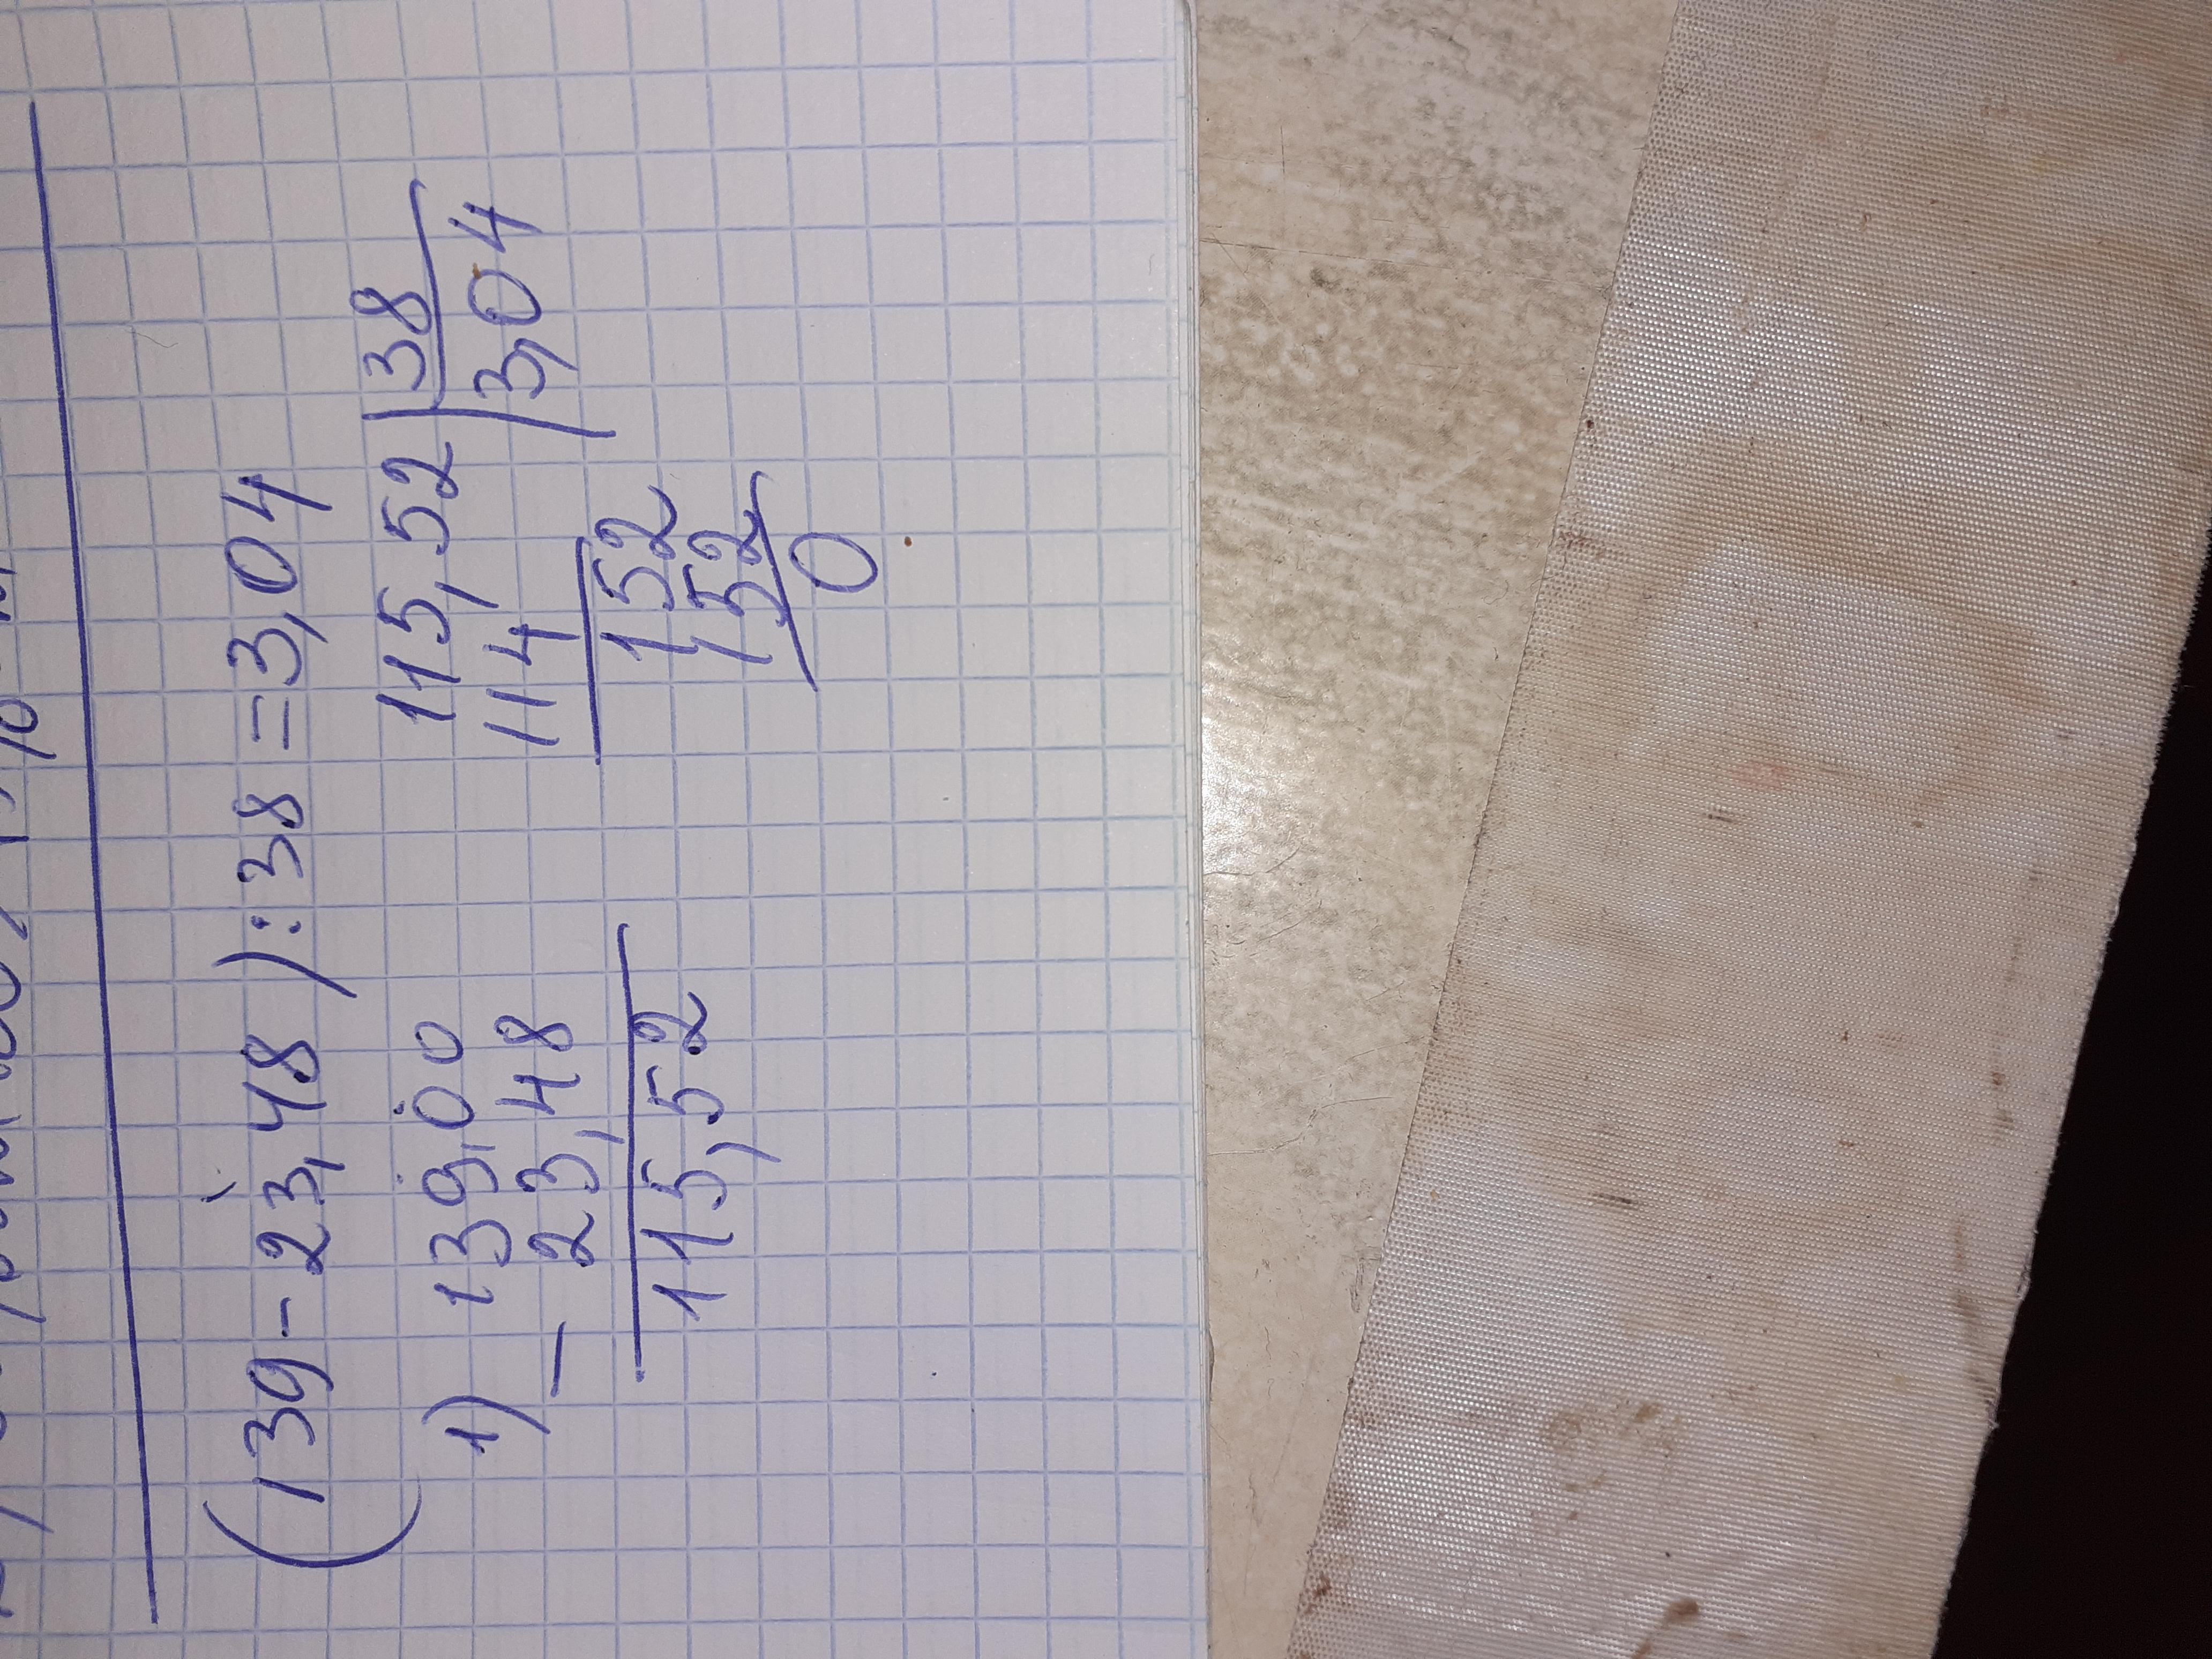 (139-23,48):38=3,04
1) 139,00
- 23,48
115,52
115,52|38
114 |3,04
152
152
0